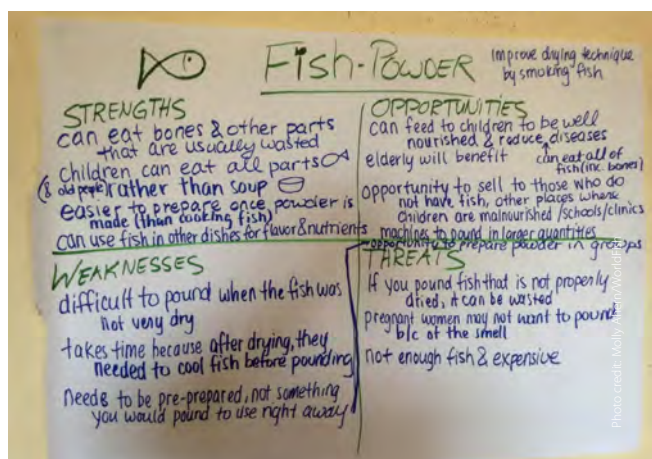 Fish-Powder
improve drying technique
by smoking fish
STRENGTHS
can eat bones & other parts
that are usually wasted
children can eat all parts
(& old people) rather than soup
easier to prepare once powder is
made (than cooking fish)
can use fish in other dishes for flavor & nutrients
OPPORTUNITIES
can feed to children to be well
nourished & reduce diseases
elderly will benefit
can eat all of
fish (inc. bones)
opportunity to sell to those who do
not have fish, other places where
children are malnourished /schools/clinics
machines to pound in larger quantities
opportunity to prepare powder in groups
WEAKNESSES
difficult to pound when the fish was
not very dry
takes time because after drying, they
needed to cool fish before pounding
needs to be pre-prepared, not something
you would pound to use right away
THREATS
If you pound fish that is not properly
dried, it can be wasted
pregnant women may not want to pound
b/c of the smell
not enough fish & expensive
Photo credit: Molly Ahern/WorldFish